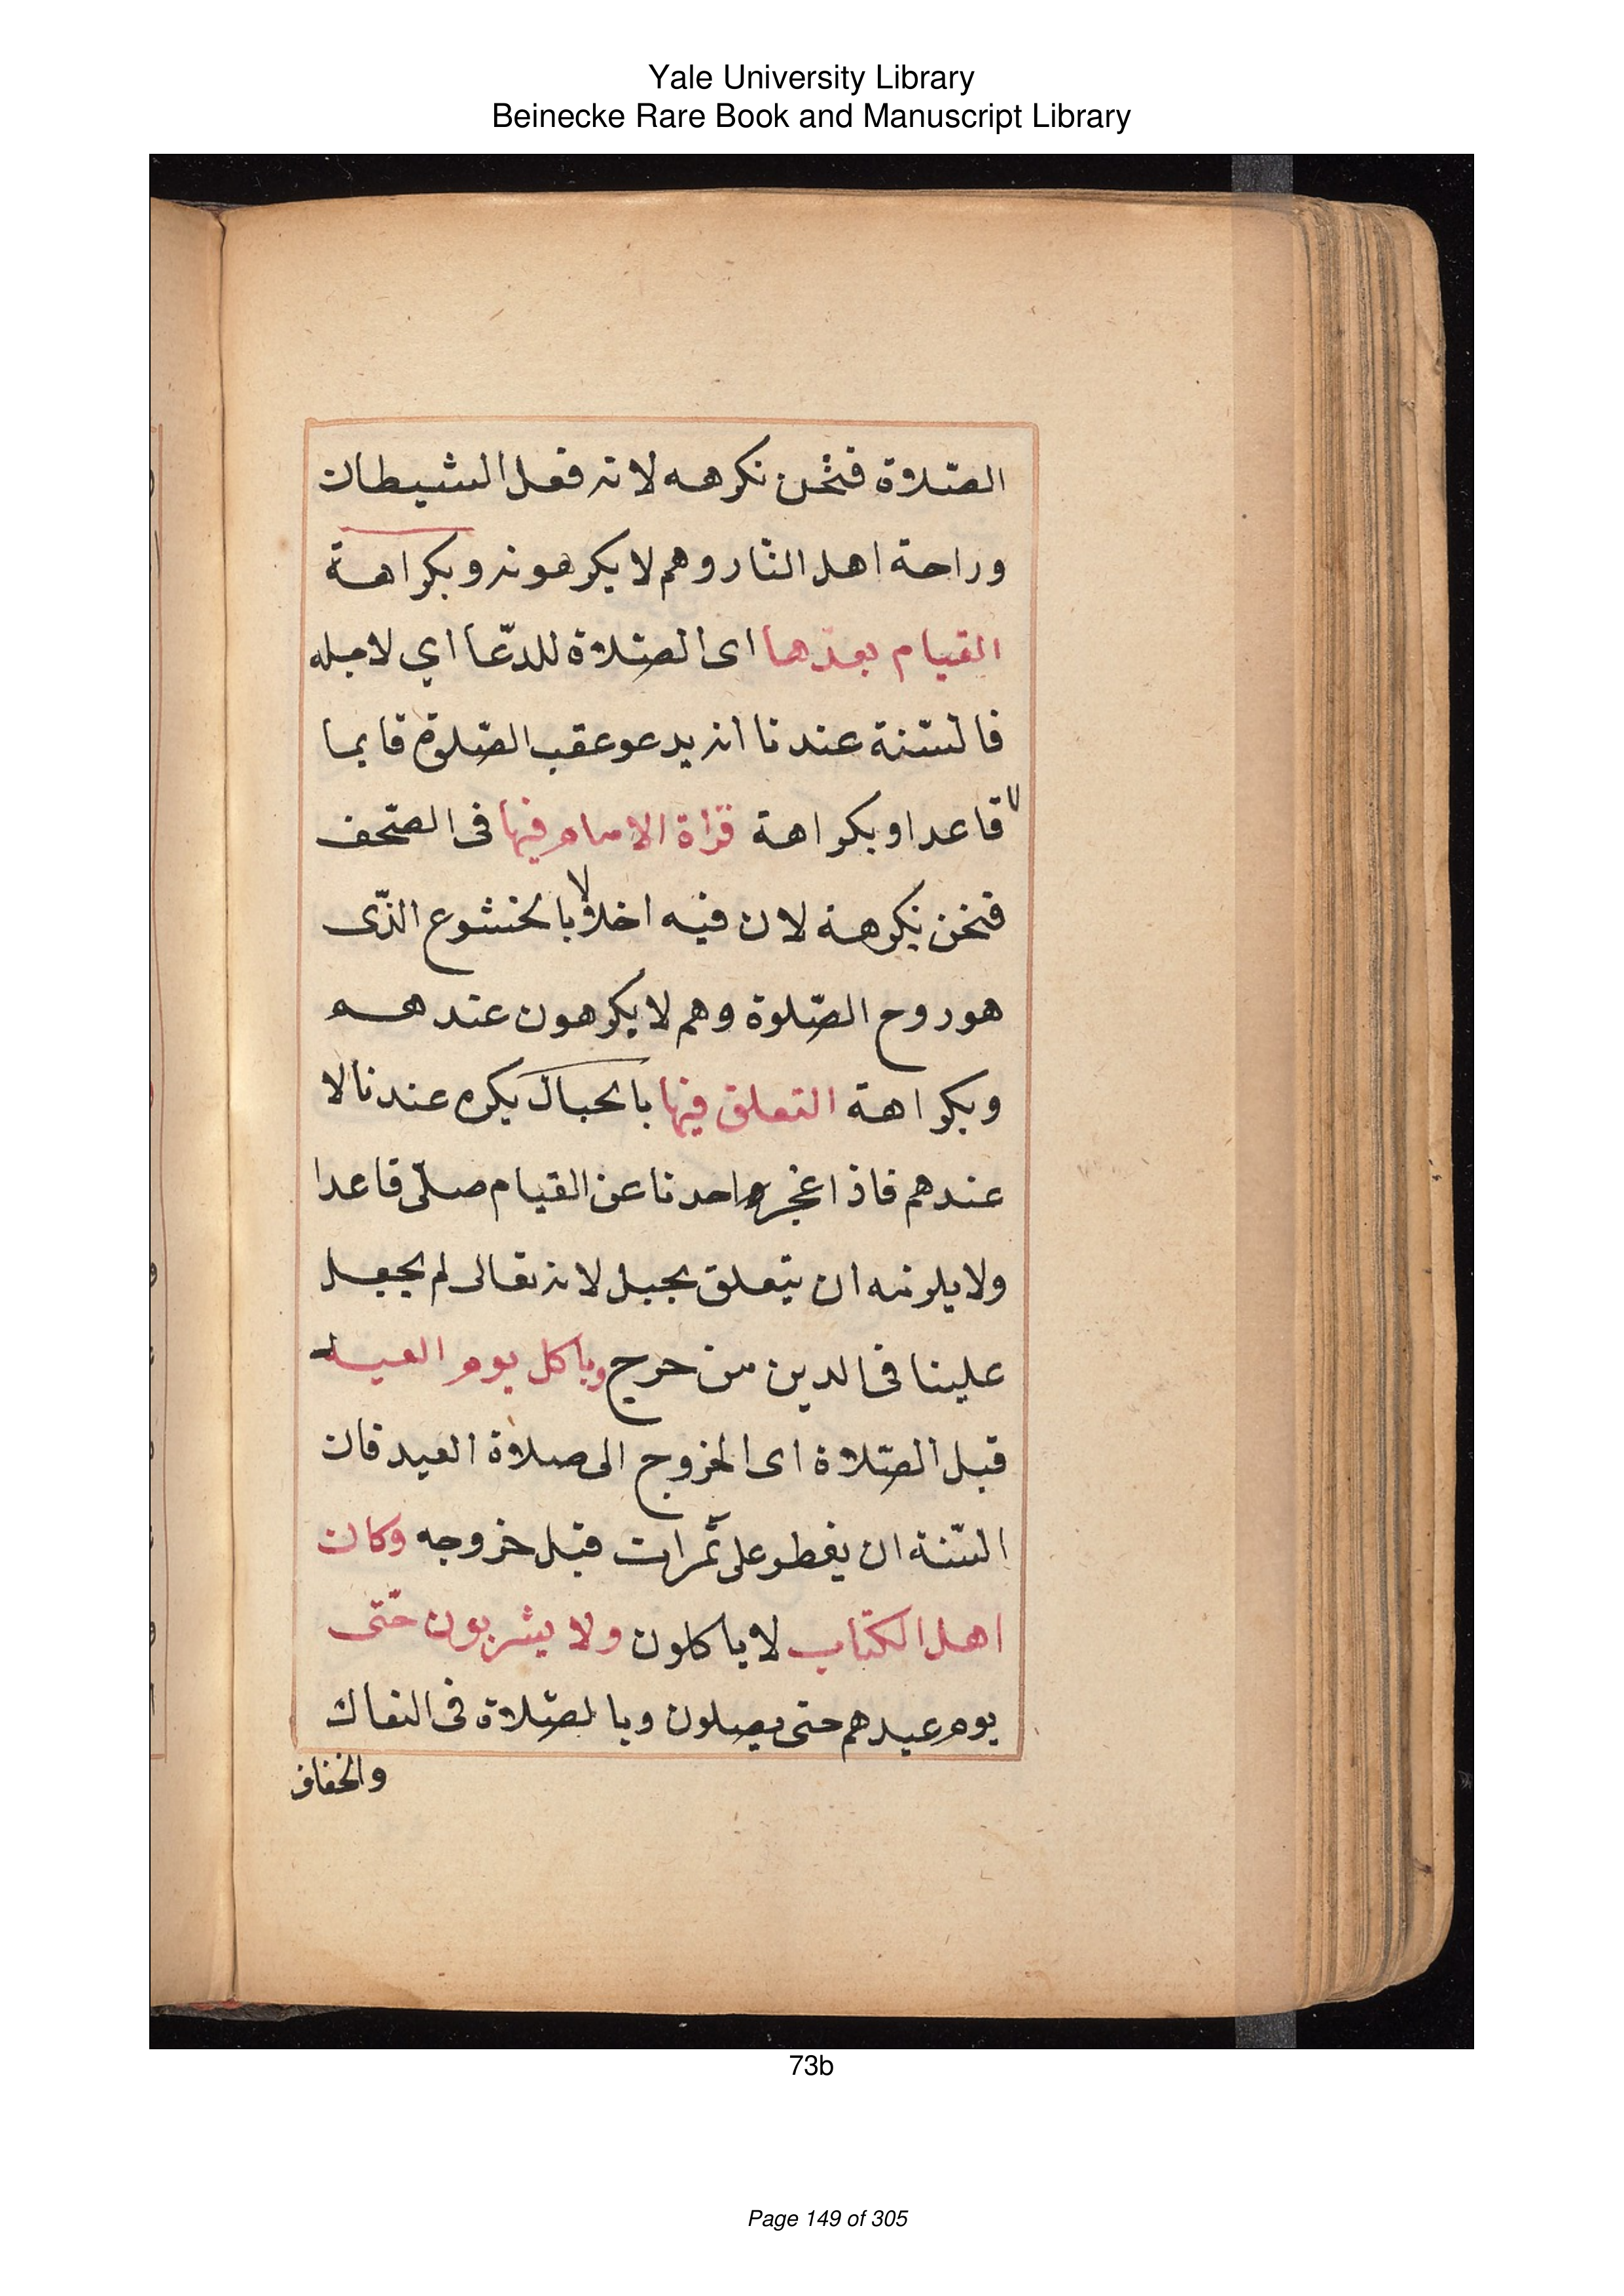 Yale University Library
Beinecke Rare Book and Manuscript Library
الصّلاة فنحن نكرهه لانه فعل الشيطان
وراحة اهل النّار وهم لا يكرهونه وبكراهة
القيام بعدها اى الصّلاة للدّعا اي لاجله
فالسّنة عندنا انه يدعو عقب الصّلوة قايما
لا قاعدا وبكراهة قراة الامام فيها فى الصّحف
فنحن نكرهه لان فيه اخلالا بالخشوع الذّى
هو روح الصّلوة وهم لا يكرهون عندهم
وبكراهة التعلق فيها بالحبال يكره عندنا لا
عندهم فاذا عجز واحدنا عن القيام صلّى قاعدا
ولا يلزمه ان يتعلق بحبل لانه تعالى لم يجعل
علينا فى الدين من حرج وباكل يوم العيد
قبل الصّلاة اى الخروج الى صلاة العيد فان
السّنة ان يفطر على تمرات قبل خروجه وكان
اهل الكتاب لا ياكلون ولا يشربون حتّى
يوم عيدهم حتى يصلون وبالصّلاة فى النعال
والخفاف
73b
Page 149 of 305